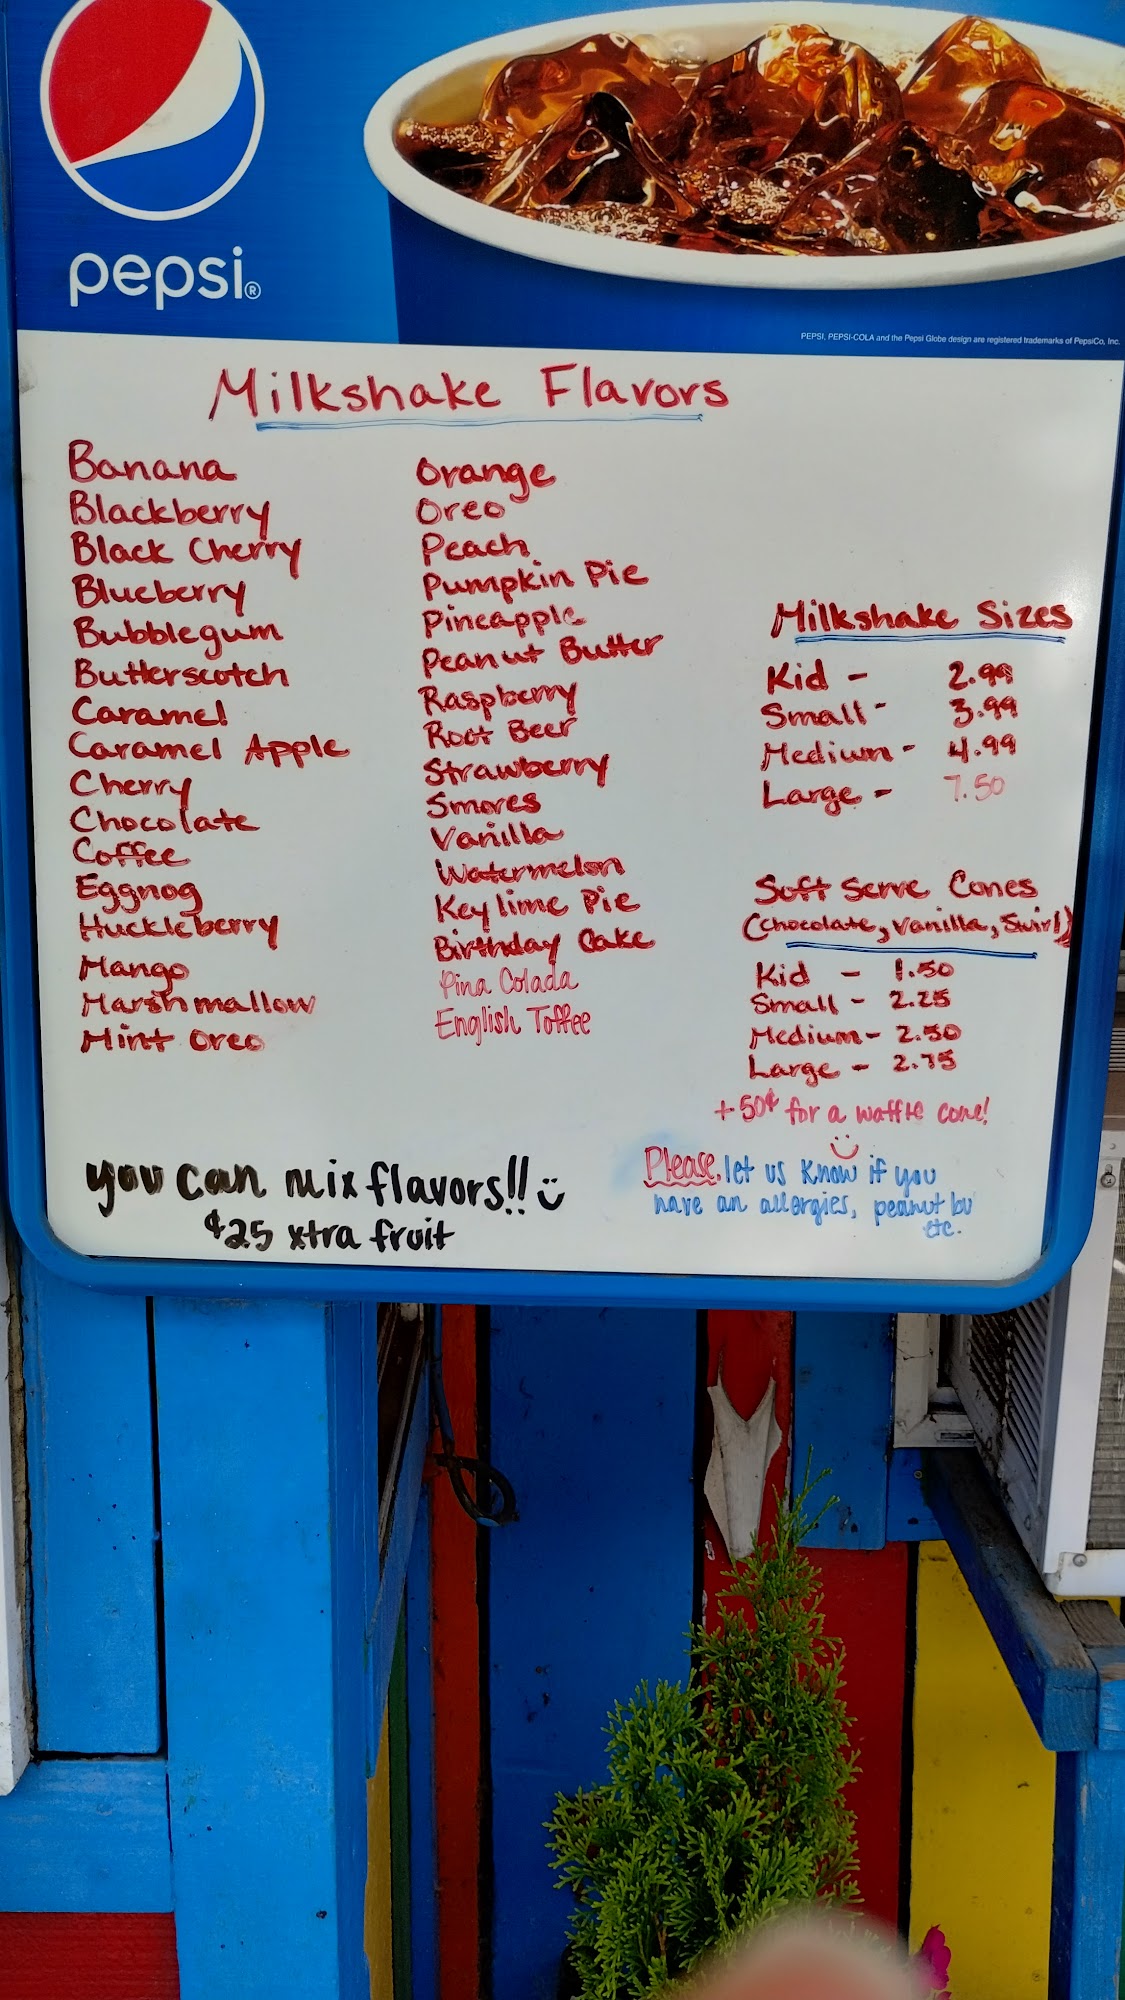 pepsi®
PEPSI, PEPSI-COLA and the Pepsi Globe design are registered trademarks of PepsiCo, Inc.
Milkshake Flavors
Banana
Blackberry
Black Cherry
Blueberry
Bubblegum
Butterscotch
Caramel
Caramel Apple
Cherry
Chocolate
Coffee
Eggnog
Huckleberry
Mango
Marshmallow
Mint Oreo
Orange
Oreo
Peach
Pumpkin Pie
Pineapple
Peanut Butter
Raspberry
Root Beer
Strawberry
Smores
Vanilla
Watermelon
Keylime Pie
Birthday Cake
Pina Colada
English Toffee
Milkshake Sizes
Kid - 2.99
Small - 3.99
Medium - 4.99
Large - 7.50
Soft Serve Cones
(chocolate, vanilla, Swirl)
Kid - 1.50
Small - 2.25
Medium - 2.50
Large - 2.75
+50¢ for a waffle cone!
you can mix flavors!!
¢25 xtra fruit
Please, let us know if you
have an allergies, peanut bu
etc.